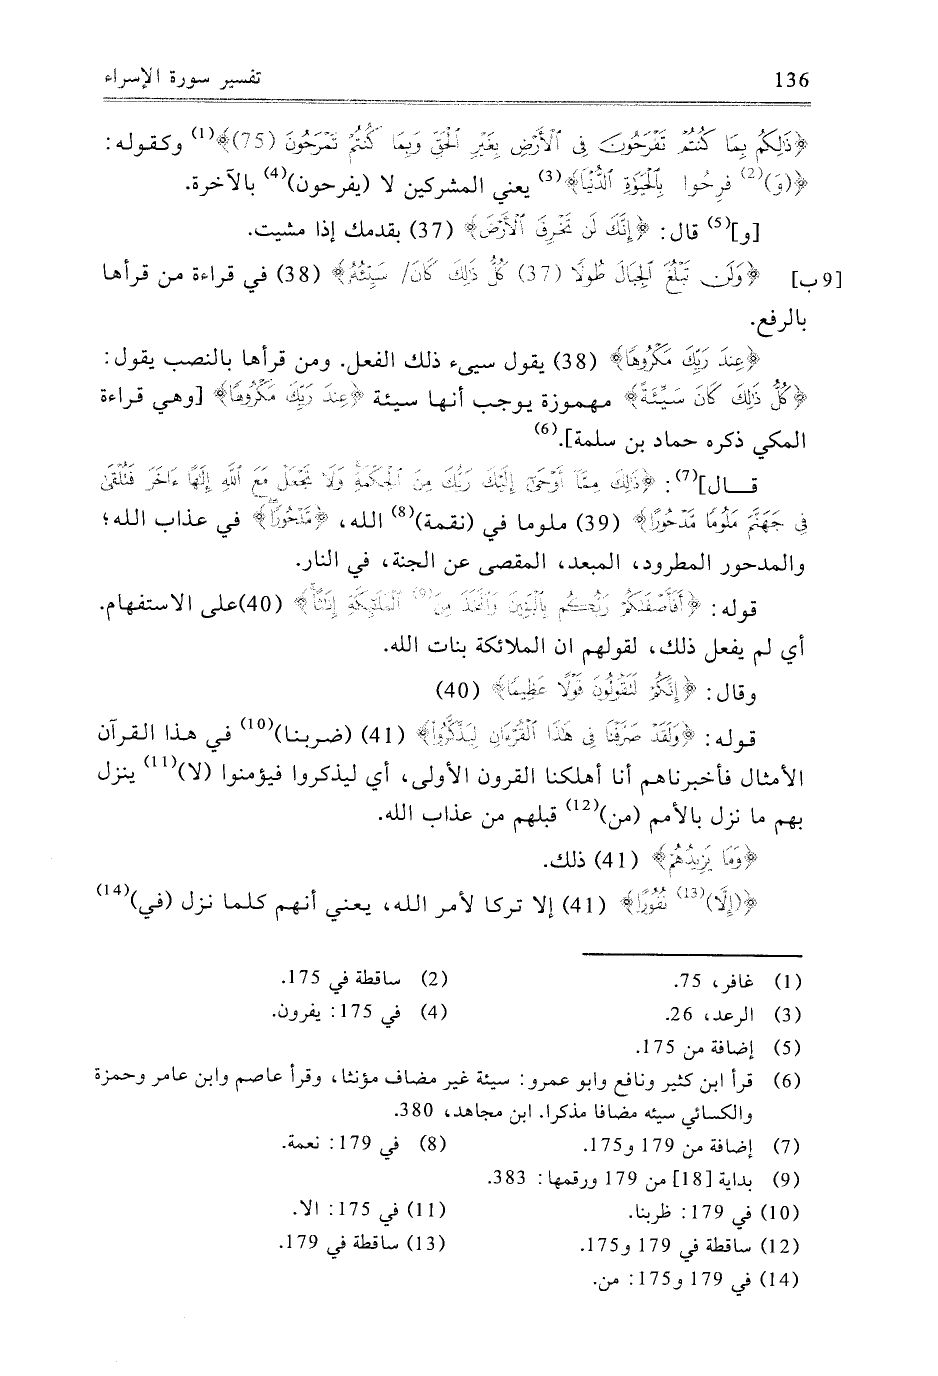 136
تفسير سورة الإسراء
﴿ذَٰلِكُم بِمَا كُنتُمْ تَفْرَحُونَ فِي ٱلْأَرْضِ بِغَيْرِ ٱلْحَقِّ وَبِمَا كُنتُمْ تَمْرَحُونَ (75)﴾(1) وكقوله:
﴿(وَ)(2) فَرِحُوا بِٱلْحَيَوٰةِ ٱلدُّنْيَا﴾(3) يعني المشركين لا (يفرحون)(4) بالآخرة.
[و](5) قال: ﴿إِنَّكَ لَن تَخْرِقَ ٱلْأَرْضَ﴾ (37) بقدمك إذا مشيت.
[9ب] ﴿وَلَن تَبْلُغَ ٱلْجِبَالَ طُولًا (37) كُلُّ ذَٰلِكَ كَانَ/ سَيِّئُهُ﴾ (38) في قراءة من قرأها
بالرفع.
﴿عِندَ رَبِّكَ مَكْرُوهًا﴾ (38) يقول سيىء ذلك الفعل. ومن قرأها بالنصب يقول:
﴿كُلُّ ذَٰلِكَ كَانَ سَيِّئَةً﴾ مهموزة يوجب أنها سيئة ﴿عِندَ رَبِّكَ مَكْرُوهًا﴾ [وهي قراءة
المكي ذكره حماد بن سلمة].(6)
قـــال](7): ﴿ذَٰلِكَ مِمَّا أَوْحَىٰٓ إِلَيْكَ رَبُّكَ مِنَ ٱلْحِكْمَةِ وَلَا تَجْعَلْ مَعَ ٱللَّهِ إِلَٰهًا ءَاخَرَ فَتُلْقَىٰ
فِي جَهَنَّمَ مَلُومًا مَّدْحُورًا﴾ (39) ملوما في (نقمة)(8) الله، ﴿مَّدْحُورًا﴾ في عذاب الله؛
والمدحور المطرود، المبعد، المقصى عن الجنة، في النار.
قوله: ﴿أَفَأَصْفَىٰكُمْ رَبُّكُم بِٱلْبَنِينَ وَٱتَّخَذَ مِنَ(9) ٱلْمَلَٰٓئِكَةِ إِنَٰثًا﴾ (40)على الاستفهام.
أي لم يفعل ذلك، لقولهم ان الملائكة بنات الله.
وقال: ﴿إِنَّكُمْ لَتَقُولُونَ قَوْلًا عَظِيمًا﴾ (40)
قوله: ﴿وَلَقَدْ صَرَّفْنَا فِي هَٰذَا ٱلْقُرْءَانِ لِيَذَّكَّرُوا﴾ (41) (ضربنا)(10) في هذا القرآن
الأمثال فأخبرناهم أنا أهلكنا القرون الأولى، أي ليذكروا فيؤمنوا (لا)(11) ينزل
بهم ما نزل بالأمم (من)(12) قبلهم من عذاب الله.
﴿وَمَا يَزِيدُهُمْ﴾ (41) ذلك.
﴿(إِلَّا)(13) نُفُورًا﴾ (41) إلا تركا لأمر الله، يعني أنهم كلما نزل (في)(14)
(1) غافر، 75. (2) ساقطة في 175.
(3) الرعد، 26. (4) في 175: يفرون.
(5) إضافة من 175.
(6) قرأ ابن كثير ونافع وابو عمرو: سيئة غير مضاف مؤنثا، وقرأ عاصم وابن عامر وحمزة
والكسائي سيئه مضافا مذكرا. ابن مجاهد، 380.
(7) إضافة من 179 و175. (8) في 179: نعمة.
(9) بداية [18] من 179 ورقمها: 383.
(10) في 179: ظربنا. (11) في 175: الا.
(12) ساقطة في 179 و175. (13) ساقطة في 179.
(14) في 179 و175: من.